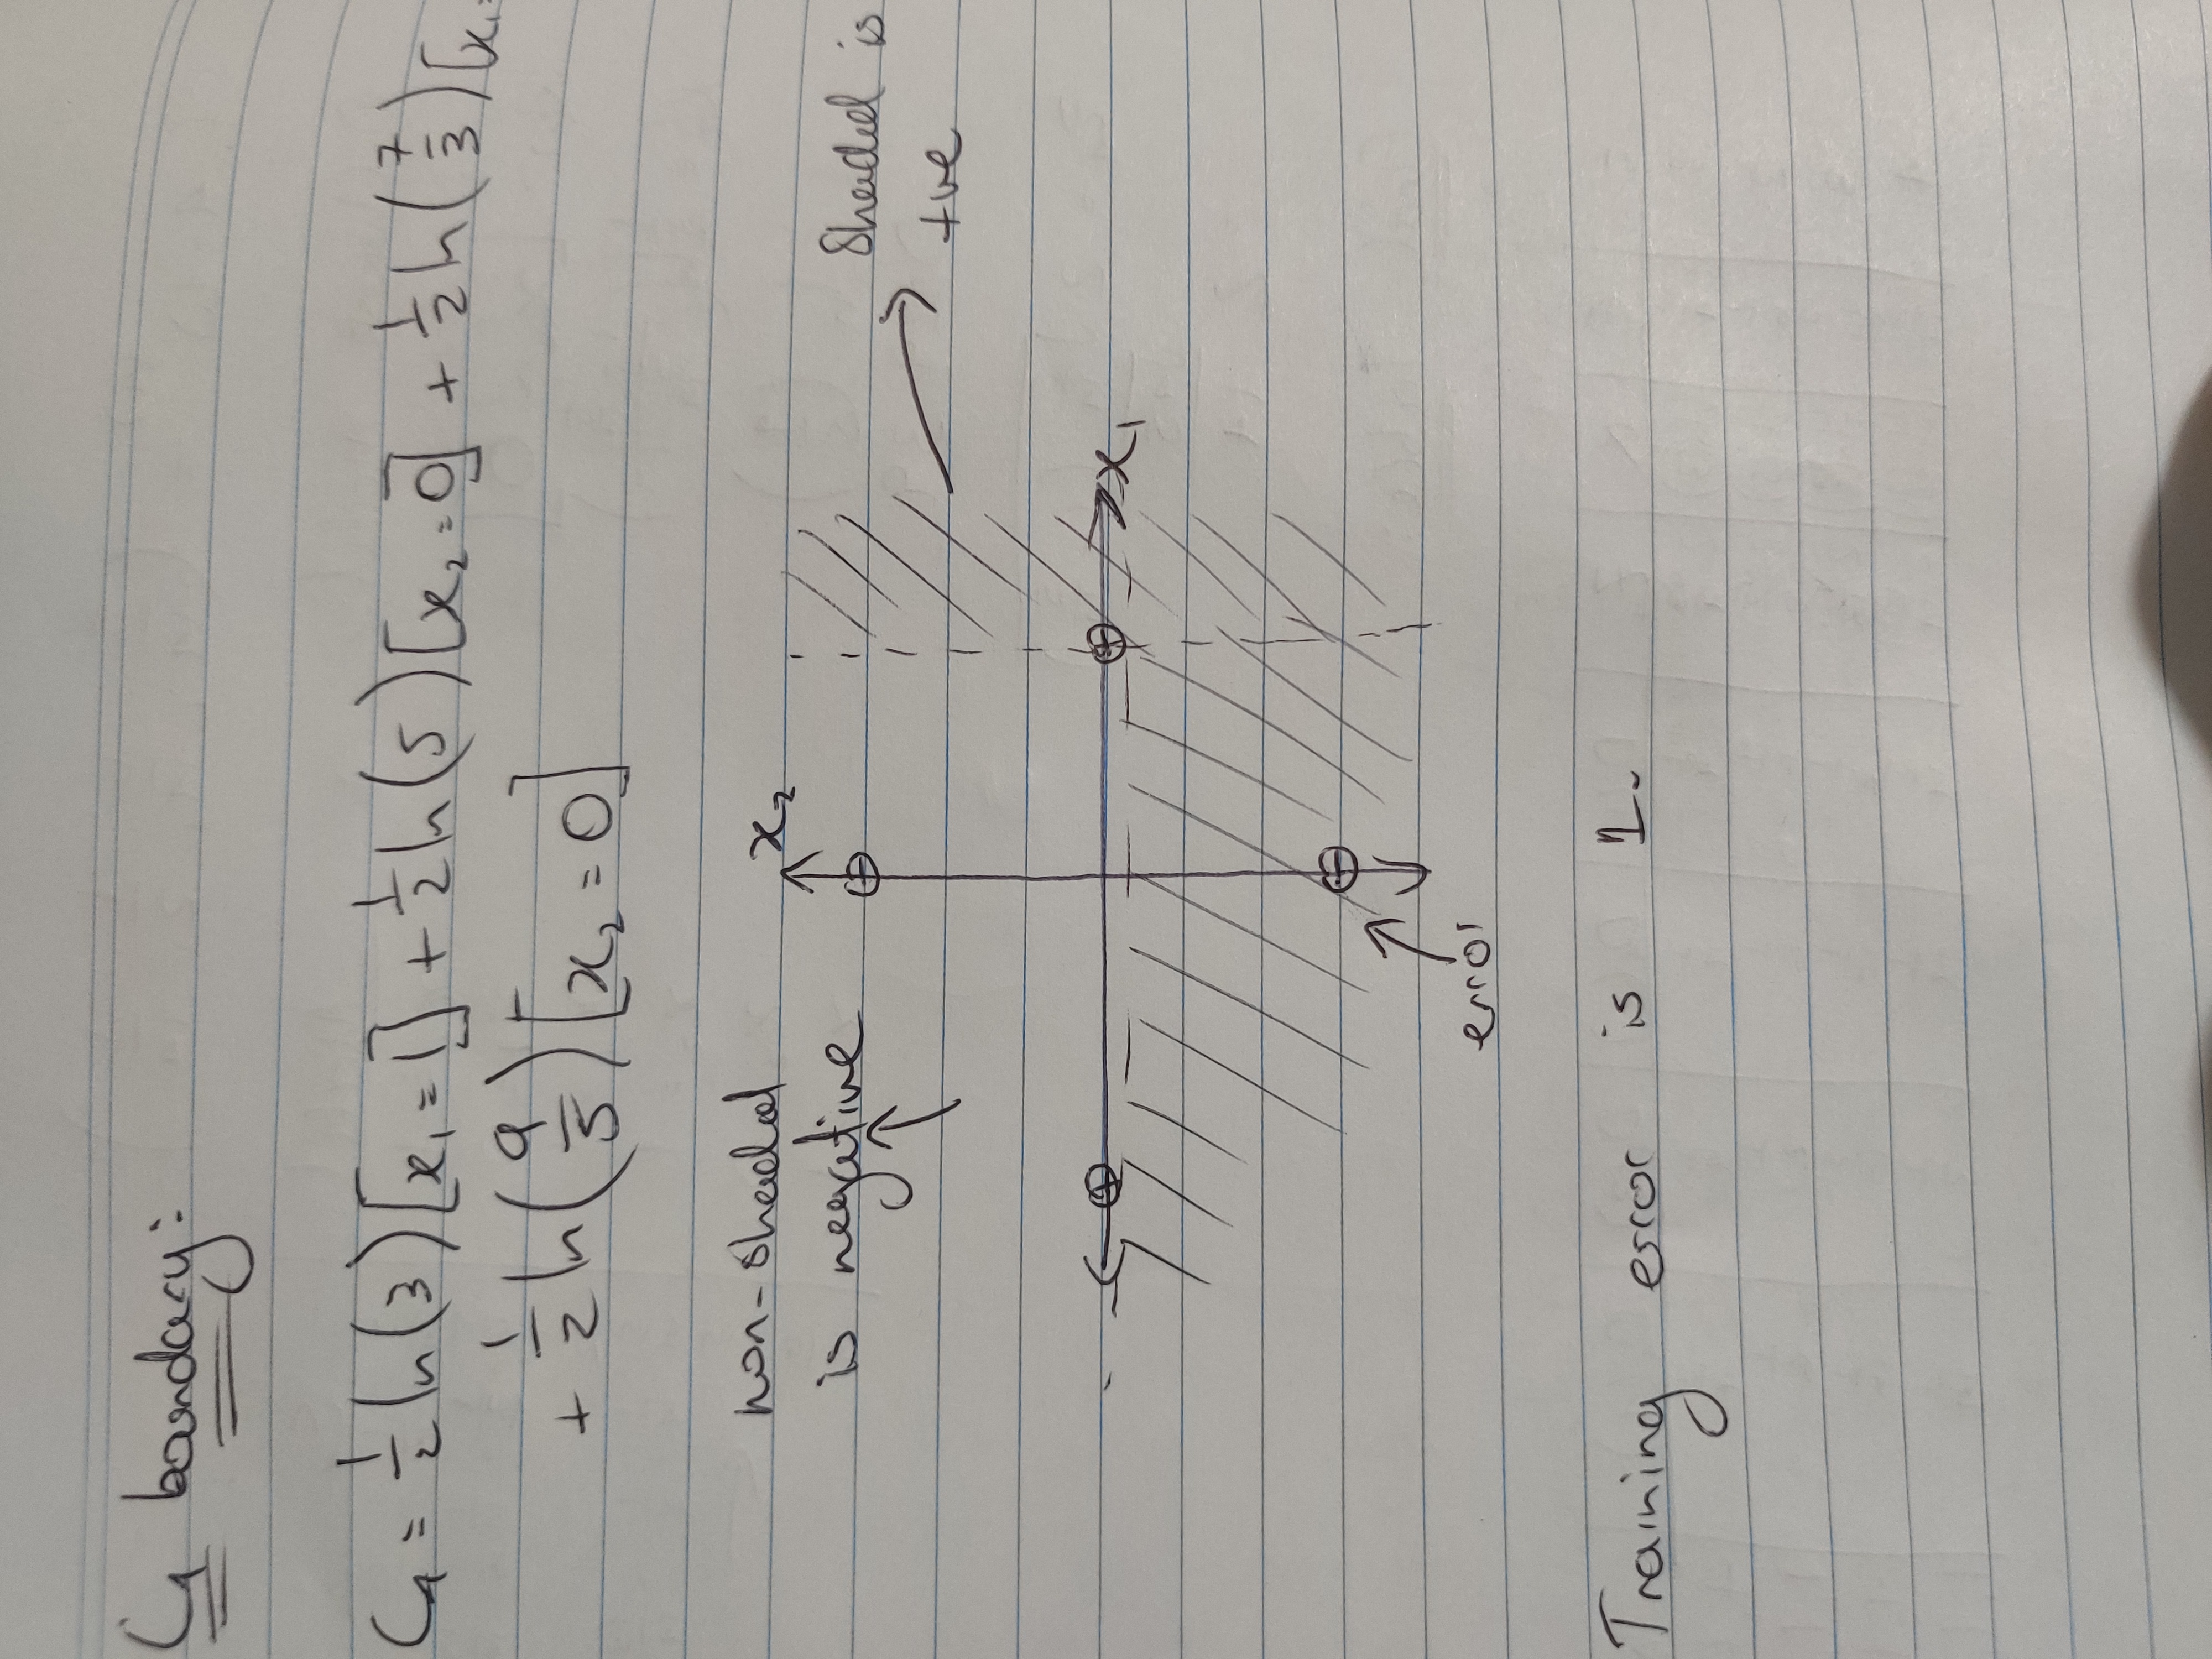 C₄ boundary:
C₄ = 1/2 ln(3)[x₁ = 1] + 1/2 ln(5)[x₂ = 0] + 1/2 ln(7/3)[x₁ =
+ 1/2 ln(9/5)[x₂ = 0]
non-shaded
is negative
x₂
Shaded is
+ve
−
+
+
x₁
−
error
Training error is 1.